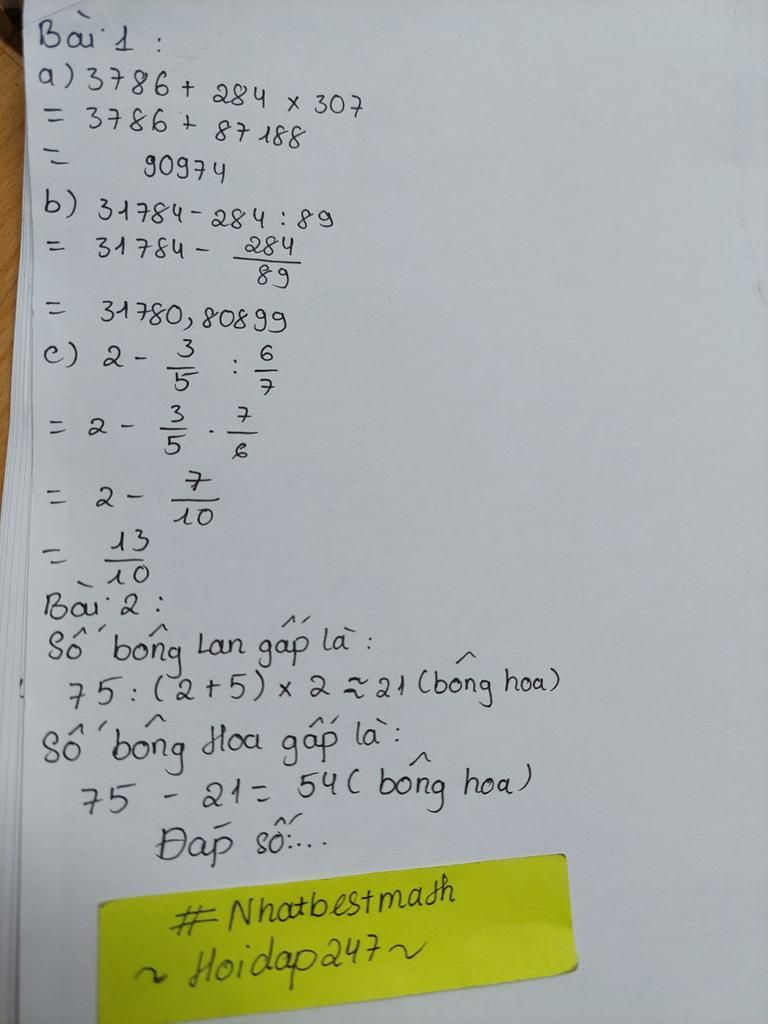 Bài 1 :
a) 3786 + 284 × 307
= 3786 + 87188
= 90974
b) 31784 - 284 : 89
= 31784 - 284/89
= 31780,80899
c) 2 - 3/5 : 6/7
= 2 - 3/5 . 7/6
= 2 - 7/10
= 13/10
Bài 2 :
Số bông Lan gấp là :
75 : (2+5) × 2 ≈ 21 (bông hoa)
Số bông Hoa gấp là :
75 - 21 = 54 ( bông hoa)
Đáp số:...
#Nhatbestmath
~ Hoidap247 ~